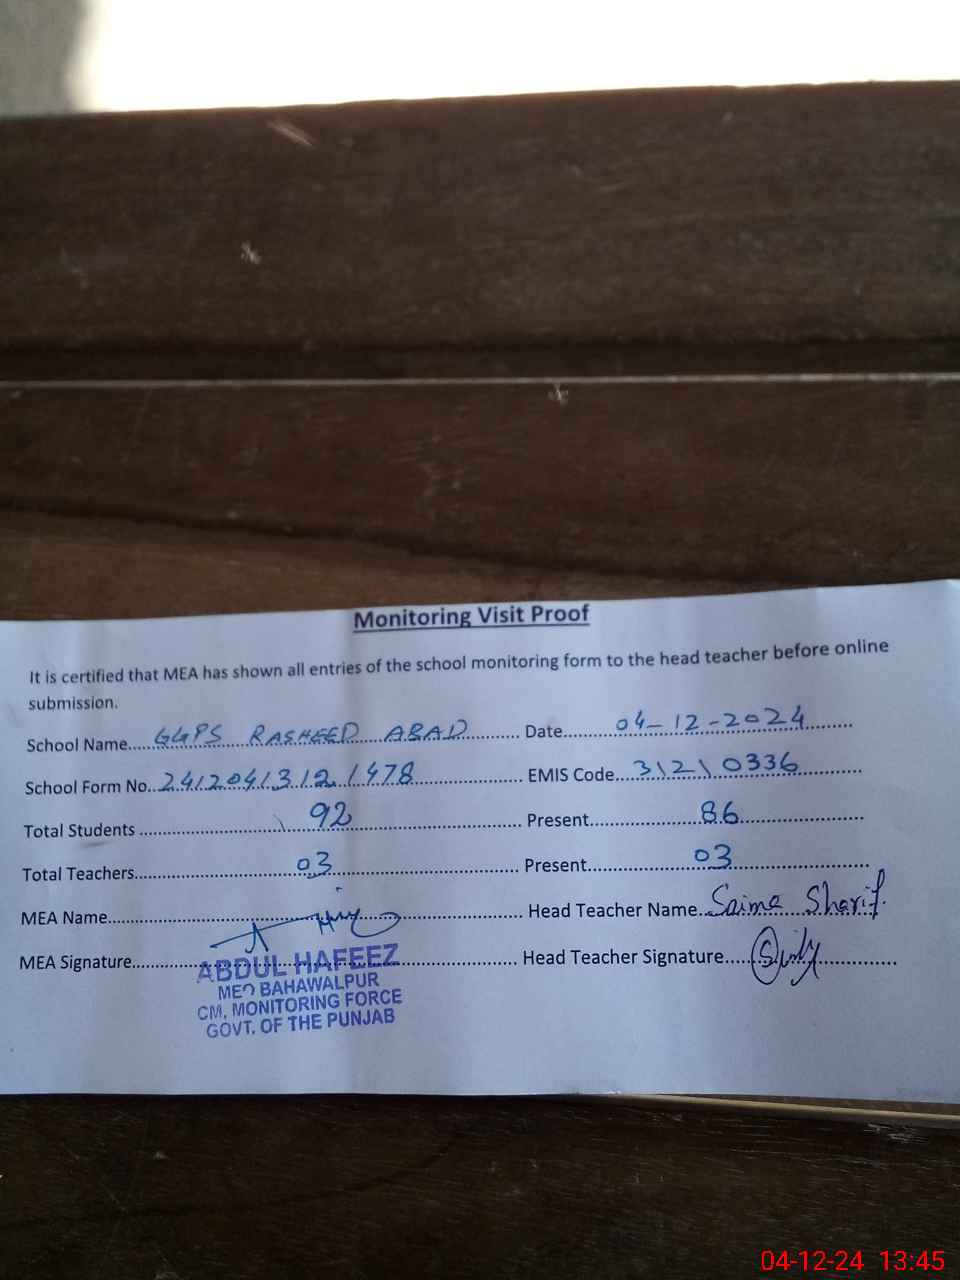 Monitoring Visit Proof
It is certified that MEA has shown all entries of the school monitoring form to the head teacher before online
submission.
School Name....GGPS RASHEED ABAD.......... Date..........04-12-2024..........
School Form No...2412041312 1478.......... EMIS Code...31210336..........
Total Students ..........92.......... Present..........86..........
Total Teachers..........03.......... Present..........03..........
MEA Name.......... Head Teacher Name..Saima Sharif.
MEA Signature.......... Head Teacher Signature..........
ABDUL HAFEEZ
MEO BAHAWALPUR
CM, MONITORING FORCE
GOVT. OF THE PUNJAB
04-12-24 13:45